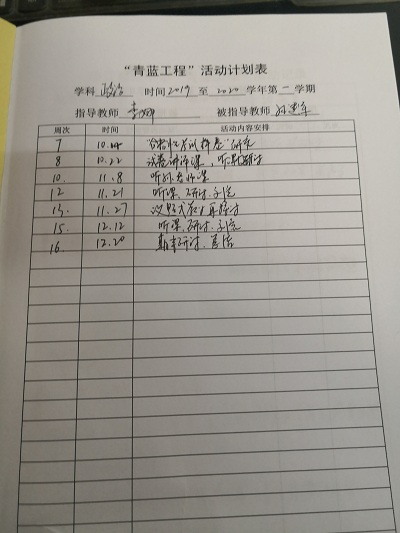 “青蓝工程”活动计划表
学科 政治 时间 2019 至 2020 学年第 一 学期
指导教师 李娜 被指导教师
周次 时间 活动内容安排
7 10.14 研究
8 10.22 试卷讲评课，听课研讨
10. 11.8 听外老师课
12 11.21 听课、研讨、交流
13. 11.27
15. 12.12 听课、研讨、交流
16. 12.20 期末研讨、总结